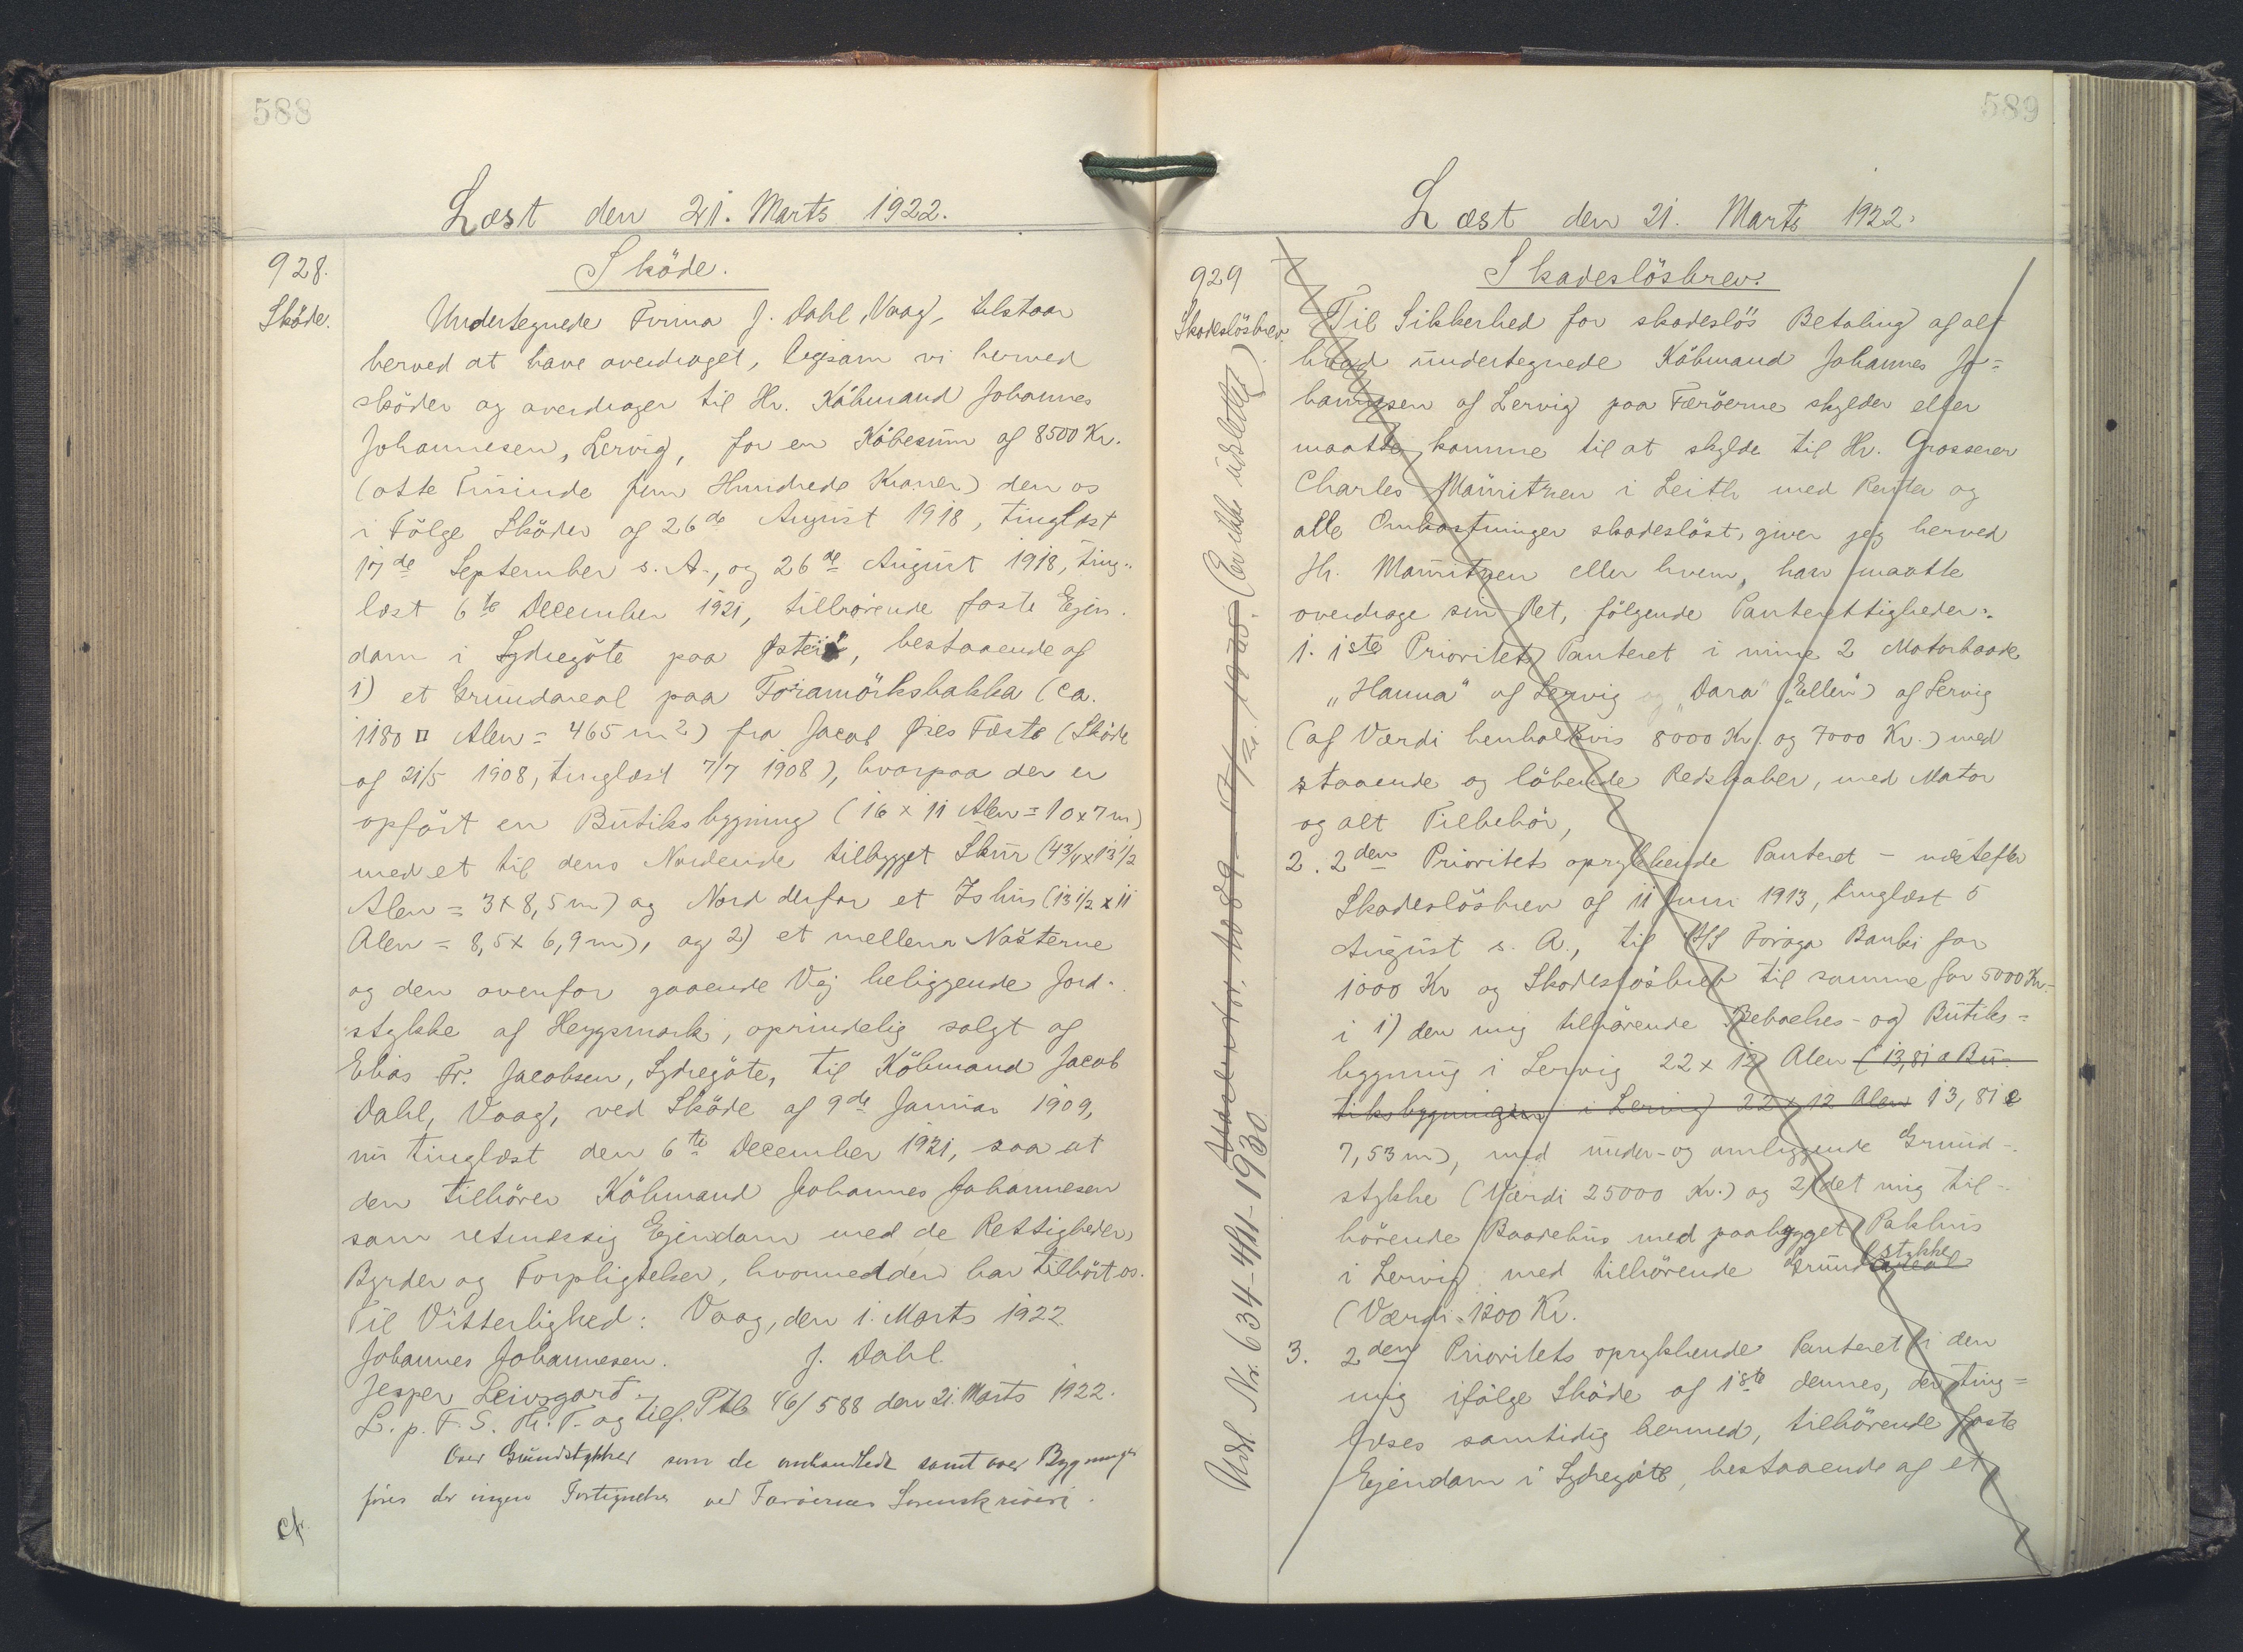 588
Læst den 21. Marts 1922.
928.
Sköde.
Sköde.
Undertegnede Firma J. Dahl, Vaag, tilstaar
herved at have overdraget, ligesom vi herved
sköder og overdrager til Hr. Köbmand Johannes
Johannesen, Lervig, for en Köbesum af 8500 Kr.
(otte Tusinde fem Hundrede Kroner) den os
i Fölge Sköder af 26de August 1918, tinglæst
17de September s. A., og 26de August 1918, ting-
læst 6te December 1921, tilhörende faste Ejen-
dom i Sydregöte paa Österö, bestaaende af
1) et Grundareal paa Toramörksbakka (ca.
1180 □ Alen = 465 m2) fra Jacob Öres Fæste (Sköde
af 21/5 1908, tinglæst 7/7 1908), hvorpaa der er
opfört en Butiksbygning (16 x 11 Alen = 10 x 7 m)
med et til dens Nordende tilbygget Skur (4 3/4 x 13 1/2
Alen = 3 x 8,5 m) og Nord derfor et Ishus (13 1/2 x 11
Alen = 8,5 x 6,9 m), og 2) et mellem Nøsterne
og den ovenfor gaaende Vej beliggende Jord-
stykke af Heygsmark, oprindelig solgt af
Elias Fr. Jacobsen, Sydregöte, til Köbmand Jacob
Dahl, Vaag, ved Sköde af 9de Januar 1909,
nu tinglæst den 6te December 1921, saa at
den tilhörer Köbmand Johannes Johannesen
som retmæssig Ejendom med de Rettigheder,
Byrder og Forpligtelser, hvormed den har tilhört os.
Til Vitterlighed: Vaag, den 1. Marts 1922.
Johannes Johannesen. J. Dahl.
Jesper Leivsgard.
L. p. F. S. Th. T. og tilf. Ptb 46/588 den 21. Marts 1922.
Over Grundstykker som de omhandlede samt over Bygninger
föres der ingen Fortegnelse ved Færöernes Sorenskriveri.
589
Læst den 21. Marts 1922.
929
Skadeslösbrev.
Skadeslösbrev.
Til Sikkerhed for skadeslös Betaling af alt
hvad undertegnede Köbmand Johannes Jo=
hannesen af Lervig paa Færöerne skylder eller
maatte komme til at skylde til Hr. Grosserer
Charles Mauritzen i Leith med Renter og
alle Omkostninger skadeslöst, giver jeg herved
Hr. Mauritzen eller hvem, han maatte
overdrage sin Ret, fölgende Panterettigheder:
1. 1ste Prioritets Panteret i mine 2 Motorbaade
"Hanna" af Lervig og "Dara" ("Ellen") af Lervig
(af Værdi henholdsvis 8000 Kr. og 7000 Kr.) med
staaende og löbende Redskaber, med Motor
og alt Tilbehör,
2. 2den Prioritets oprykkende Panteret - næstefter
Skadeslösbrev af 11 Juni 1913, tinglæst 5
August s. A., til A/S Föroya Banki for
1000 Kr og Skadeslösbrev til samme for 5000 Kr.
i 1) den mig tilhörende Beboelses- og Butiks=
bygning i Lervig 22 x 12 Alen (13,81 a Bu-
tiksbygningen i Lervig 22 x 12 Alen 13,81 x
7,53 m), med under- og omliggende Grund-
stykke (Værdi 25000 Kr.) og 2) det mig til-
hörende Baadehus med paabygget Pakhus
i Lervig med tilhörende Grundareal stykke
(Værdi 1200 Kr.
3. 2den Prioritets oprykkende Panteret i den
mig ifölge Sköde af 1ste dennes, der ting=
læses samtidig hermed, tilhörende faste
Ejendom i Sydregöte, bestaaende af et
(Er ikke udslettet)
Udsl. Nr. 634 - 4/11 - 1930